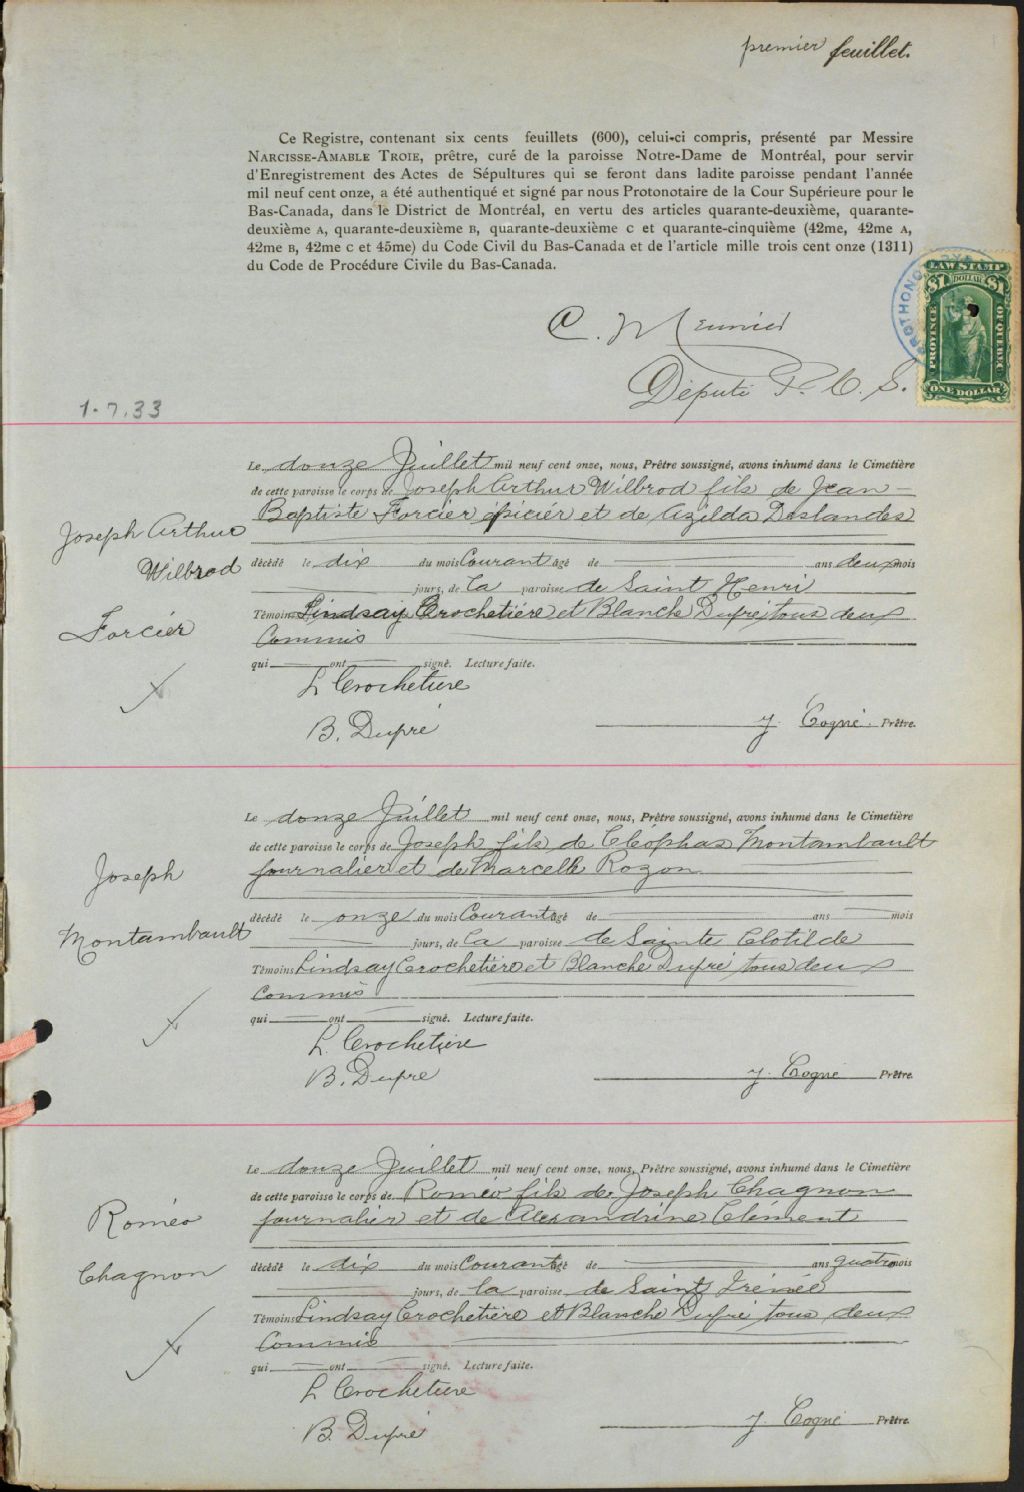 premier feuillet.
Ce Registre, contenant six cents feuillets (600), celui-ci compris, présenté par Messire
NARCISSE-AMABLE TROIE, prêtre, curé de la paroisse Notre-Dame de Montréal, pour servir
d'Enregistrement des Actes de Sépultures qui se feront dans ladite paroisse pendant l'année
mil neuf cent onze, a été authentiqué et signé par nous Protonotaire de la Cour Supérieure pour le
Bas-Canada, dans le District de Montréal, en vertu des articles quarante-deuxième, quarante-
deuxième A, quarante-deuxième B, quarante-deuxième C et quarante-cinquième (42me, 42me A,
42me B, 42me C et 45me) du Code Civil du Bas-Canada et de l'article mille trois cent onze (1311)
du Code de Procédure Civile du Bas-Canada.
PROTHONO
LAW STAMP
$1 DOLLAR $1
PROVINCE OF QUEBEC
ONE DOLLAR
C. Meunier
Députi P. C. S.
1.7.33
Le douze Juillet mil neuf cent onze, nous, Prêtre soussigné, avons inhumé dans le Cimetière
de cette paroisse le corps de Joseph Arthur Wilbrod fils de Jean-
Baptiste Forcier épicier et de Azilda Deslandes
Joseph Arthur
Wilbrod
Forcier
décédé le dix du mois Courant âgé de ans deux mois
jours, de la paroisse de Saint Henri
Témoins Lindsay Crochetière et Blanche Dupré tous deux
Commis
qui ont signé. Lecture faite.
L Crochetiere
B. Dupré
J. Cogné Prêtre.
Le douze Juillet mil neuf cent onze, nous, Prêtre soussigné, avons inhumé dans le Cimetière
de cette paroisse le corps de Joseph fils de Cléophas Montambault
journalier et de Marcelle Rozon
Joseph
Montambault
décédé le onze du mois Courant âgé de ans mois
jours, de la paroisse de Sainte Clotilde
Témoins Lindsay Crochetière et Blanche Dupré tous deux
Commis
qui ont signé. Lecture faite.
L. Crochetiere
B. Dupré
J. Cogné Prêtre.
Le douze Juillet mil neuf cent onze, nous, Prêtre soussigné, avons inhumé dans le Cimetière
de cette paroisse le corps de Roméo fils de Joseph Chagnon
journalier et de Alexandrine Clément
Roméo
Chagnon
décédé le dix du mois Courant âgé de ans quatre mois
jours, de la paroisse de Saint Irénée
Témoins Lindsay Crochetière et Blanche Dupré tous deux
Commis
qui ont signé. Lecture faite.
L Crochetiere
B. Dupré
J. Cogné Prêtre.